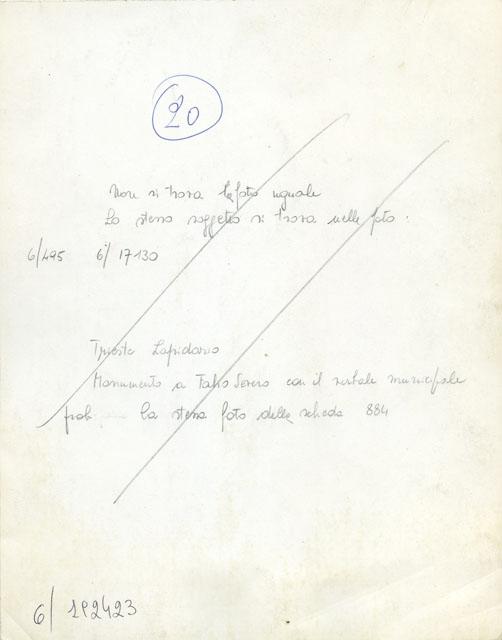 20
Non si trova la foto uguale
Lo stesso soggetto si trova nelle foto:
6/495 6/17130
Trieste Lapidario
Monumento a Fabio Severo con il verbale municipale
prob la stessa foto della scheda 884
6/192423